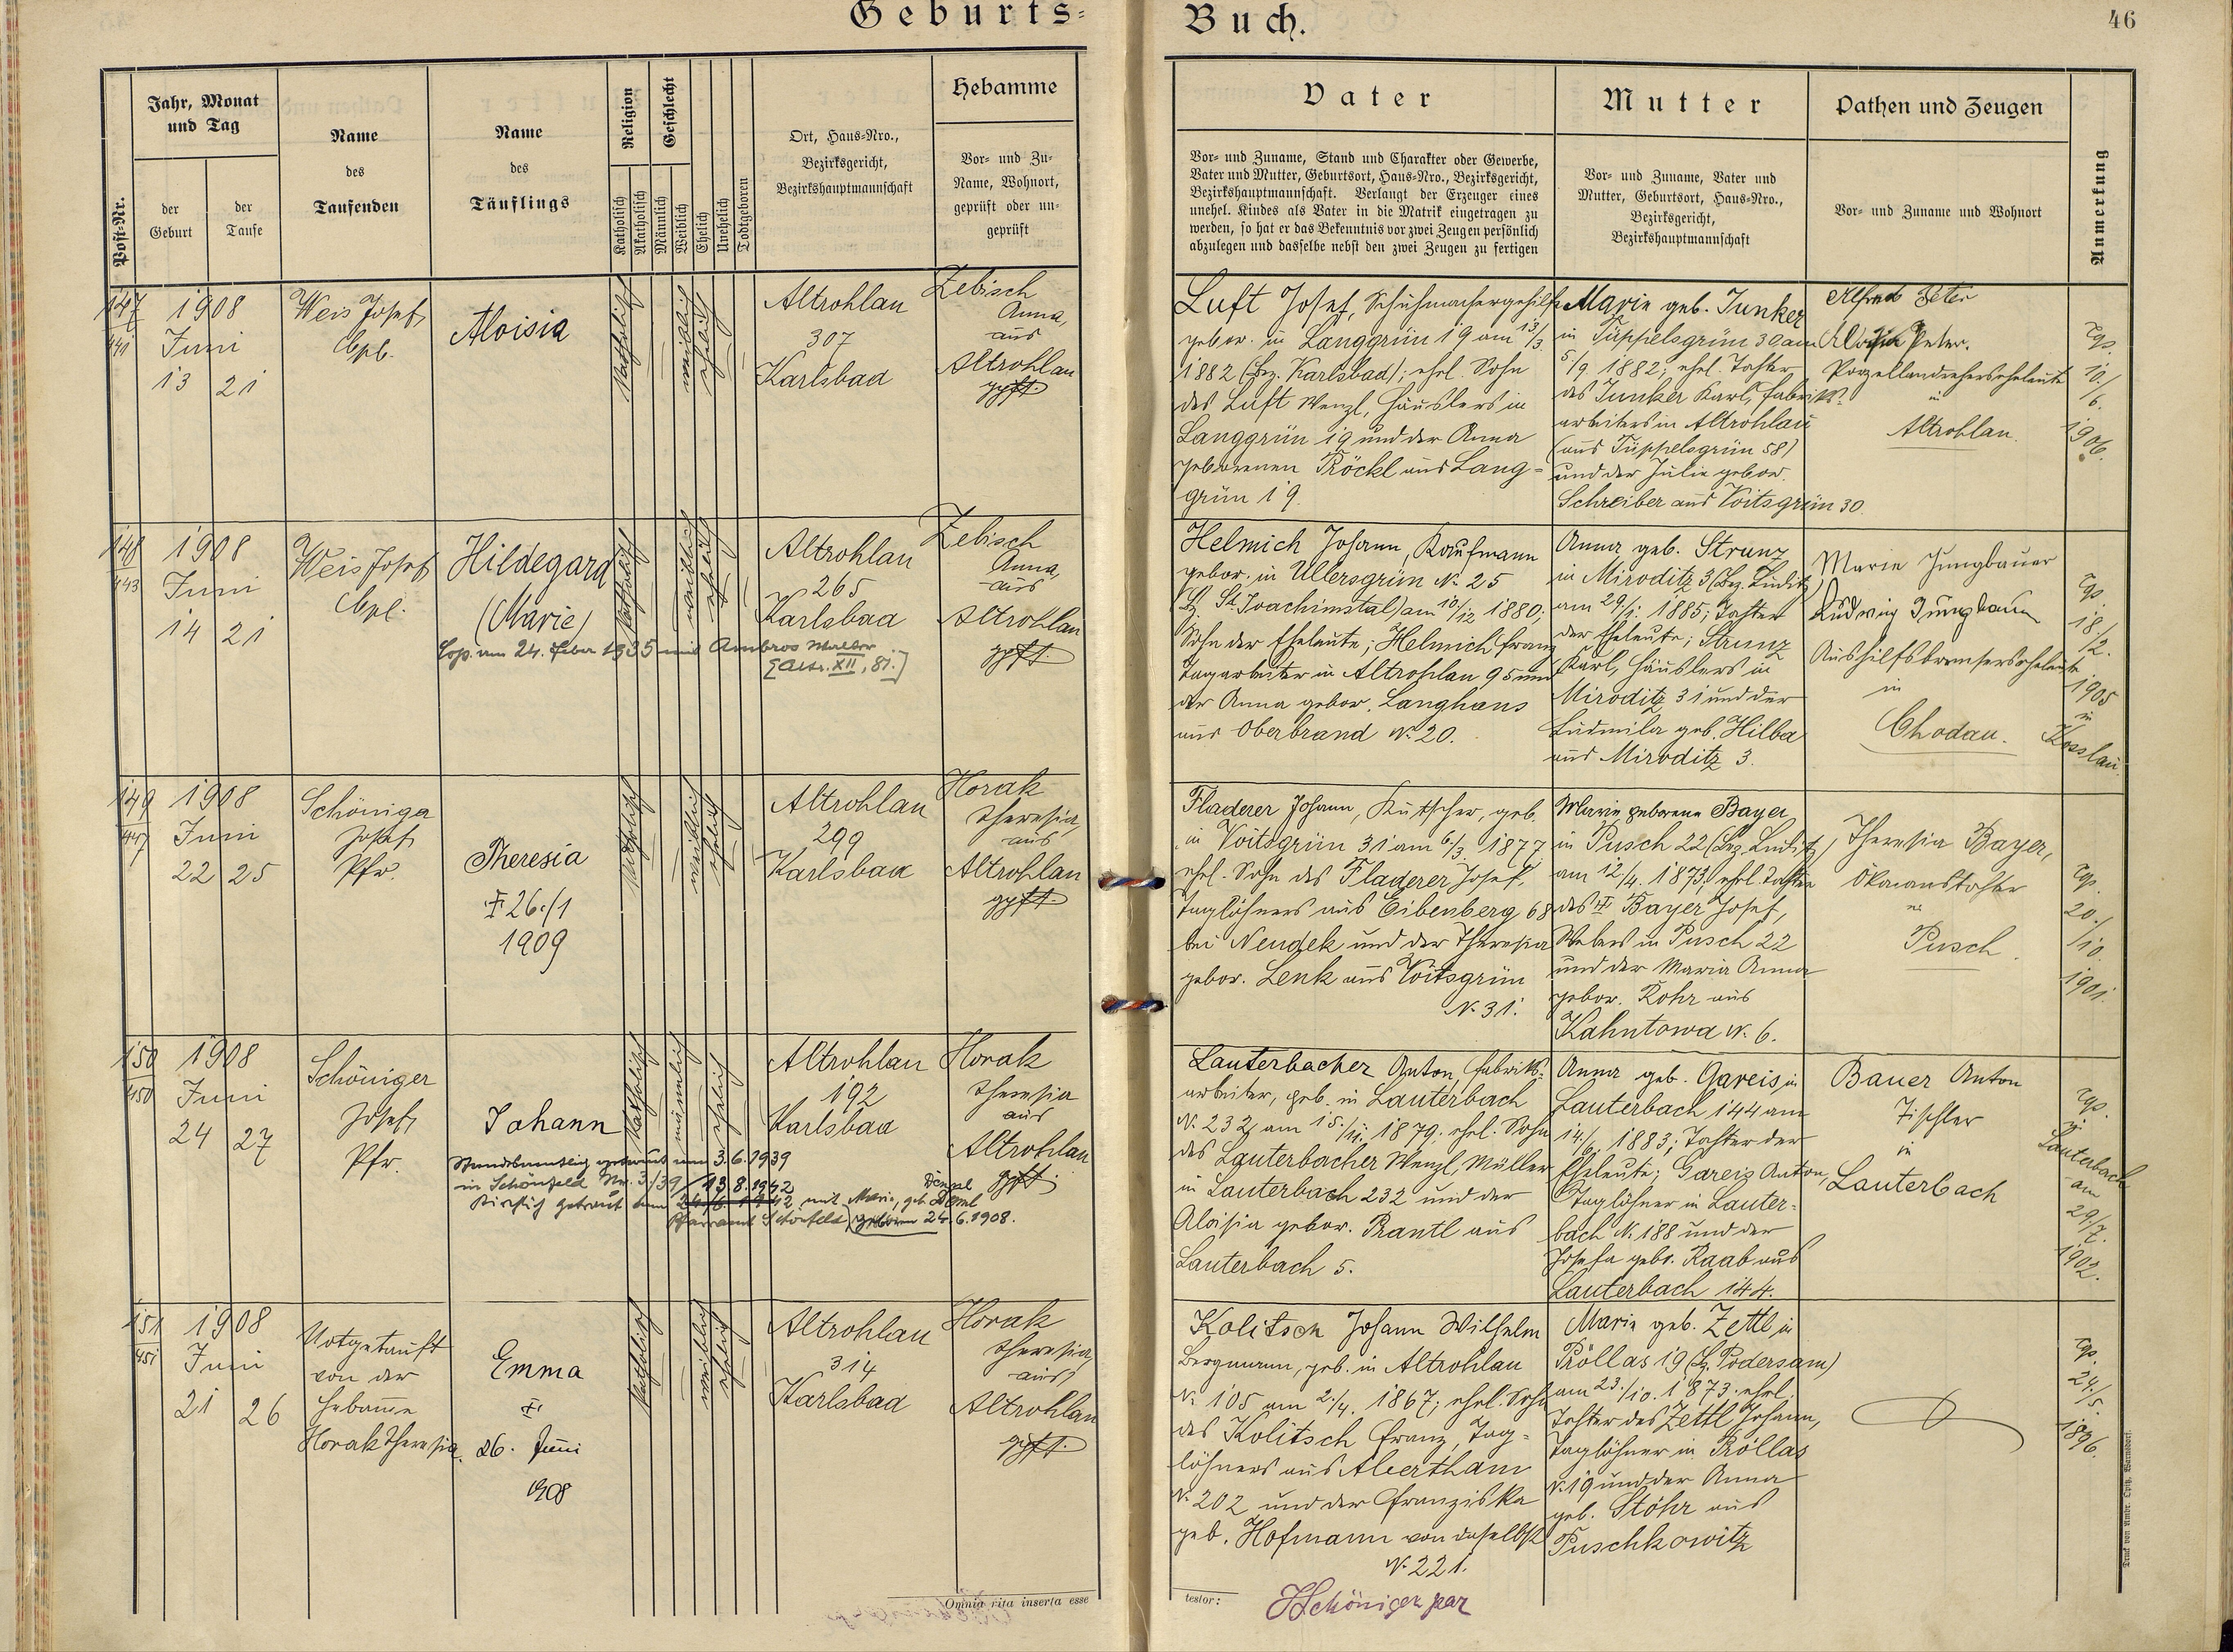 Geburts=
Buch.
46
Post-Nr.
Jahr, Monat
und Tag
der
Geburt
der
Taufe
Name
des
Taufenden
Name
des
Täuflings
Religion
Katholisch
Akatholisch
Geschlecht
Männlich
Weiblich
Ehelich
Unehelich
Todtgeboren
Ort, Haus-Nro.,
Bezirksgericht,
Bezirkshauptmannschaft
Hebamme
Vor- und Zu-
Name, Wohnort,
geprüft oder un-
geprüft
Vater
Vor- und Zuname, Stand und Charakter oder Gewerbe,
Vater und Mutter, Geburtsort, Haus-Nro., Bezirksgericht,
Bezirkshauptmannschaft. Verlangt der Erzeuger eines
unehel. Kindes als Vater in die Matrik eingetragen zu
werden, so hat er das Bekenntnis vor zwei Zeugen persönlich
abzulegen und dasselbe nebst den zwei Zeugen zu fertigen
Mutter
Vor- und Zuname, Vater und
Mutter, Geburtsort, Haus-Nro.,
Bezirksgericht,
Bezirkshauptmannschaft
Pathen und Zeugen
Vor- und Zuname und Wohnort
Anmerkung
147
441
1908
Juni
13 21
Weis Josef,
Cpl.
Aloisia
katholisch
weiblich
ehelich
Altrohlau
307
Karlsbad
Zebisch
Anna,
aus
Altrohlau
gpft.
Luft Josef, Schuhmachergehilfe
gebor. in Langgrün 19 am 13/3.
1882 (Bez. Karlsbad); ehel. Sohn
des Luft Wenzl, Häuslers in
Langgrün 19 und der Anna
geborenen Pröckl aus Lang=
grün 19.
Marie geb. Junker
in Tüppelsgrün 30 am
5/9. 1882; ehel. Tochter
des Junker Karl, Fabriks=
arbeiters in Altrohlau
(aus Tüppelsgrün 58)
und der Julie gebor.
Schreiber aus Voitsgrün 30.
Alfred Peter
Aloisia Peter.
Porzellandreherseheleute
in
Altrohlau.
Cop.
10./
6.
1906.
148
443
1908
Juni
14 21
Weis Josef
Cpl.
Hildegard
(Marie)
Cop. am 24. Feber 1935 mit Ambros Walter
[Altr. XII, 81.]
katholisch
weiblich
ehelich
Altrohlau
265
Karlsbad
Zebisch
Anna,
aus
Altrohlau
gpft.
Helmich Johann, Kaufmann
gebor. in Ullersgrün N. 25
(Bz. St. Joachimstal) am 10/12 1880;
Sohn der Eheleute; Helmich Franz
Tagarbeiter in Altrohlau 95 und
der Anna gebor. Langhans
aus Oberbrand N. 20.
Anna geb. Strunz
in Miroditz 3 (Bez. Luditz)
am 29/1. 1885; Tochter
der Eheleute; Strunz
Karl, Häuslers in
Miroditz 31 und der
Ludmila geb. Hilba
aus Miroditz 3.
Marie Jungbauer
Ludwig Jungbauer
Aushilfsbremserseheleute
in
Chodau.
Cop.
18./
12.
1905
in
Kosslau.
149
447
1908
Juni
22 25
Schöniger
Josef
Pfr.
Theresia
† 26./1
1909
katholisch
weiblich
ehelich
Altrohlau
299
Karlsbad
Horak
Theresia,
aus
Altrohlau
gpft.
Fladerer Johann, Kutscher, geb.
in Voitsgrün 31 am 6/3. 1877
ehel. Sohn des Fladerer Josef,
Taglöhners aus Eibenberg 68
bei Neudek und der Theresia
gebor. Lenk aus Voitsgrün
N. 31.
Marie geborene Bayer
in Pusch 22 (Bez. Luditz)
am 12/4. 1873; ehel. Tochter
des † Bayer Josef,
Webers in Pusch 22
und der Maria Anna
gebor. Rohr aus
Kahntowa N. 6.
Theresia Bayer,
Ökonomstochter
in
Pusch.
Cop.
20./
10.
1901.
150
450
1908
Juni
24 27
Schöniger
Josef,
Pfr.
Johann
Standesamtlich getraut am 3.6.1939
in Schönfeld Nr. 3/39 13.8.1942
Kirchlich getraut am mit Marie, geb.
Pfarramt Schönfeld, geboren 24.6.1908.
katholisch
männlich
ehelich
Altrohlau
192
Karlsbad
Horak
Theresia
aus
Altrohlau
gpft.
Lauterbacher Anton, Fabriks=
arbeiter, geb. in Lauterbach
N. 232, am 15./11. 1879; ehel. Sohn
des Lauterbacher Wenzl, Müller
in Lauterbach 232 und der
Aloisia gebor. Prantl aus
Lauterbach 5.
Anna geb. Gareis, in
Lauterbach 144 am
14./6. 1883; Tochter der
Eheleute; Gareis Anton,
Taglöhner in Lauter=
bach N. 188 und der
Josefa gebr. Raab aus
Lauterbach 144.
Bauer Anton
Tischler
in
Lauterbach
Cop.
in
Lauterbach
am
29/7.
1902.
151
451
1908
Juni
21 26
Notgetauft
von der
Hebamme
Horak Theresia.
Emma
†
26. Juni
1908
katholisch
weiblich
ehelich
Altrohlau
314
Karlsbad
Horak
Theresia,
aus
Altrohlau
gpft.
Kolitsch Johann Wilhelm
Bergmann, geb. in Altrohlau
N. 105 am 2./4. 1867; ehel. Sohn
des Kolitsch Franz, Tag=
löhners aus Abertham
N. 202 und der Franziska
geb. Hofmann von daselbst
N. 221.
Marie geb. Zettl in
Pröllas 19 (Bz. Podersam)
am 23./10. 1873. ehel.
Tochter des Zettl Johann,
Taglöhner in Pröllas
N. 19 und der Anna
geb. Stöhr aus
Puschkowitz
Cop.
24./
5.
1896.
Omnia rita inserta esse
testor:
JSchöniger par
Druck von Ambr. Opitz, Warnsdorf.